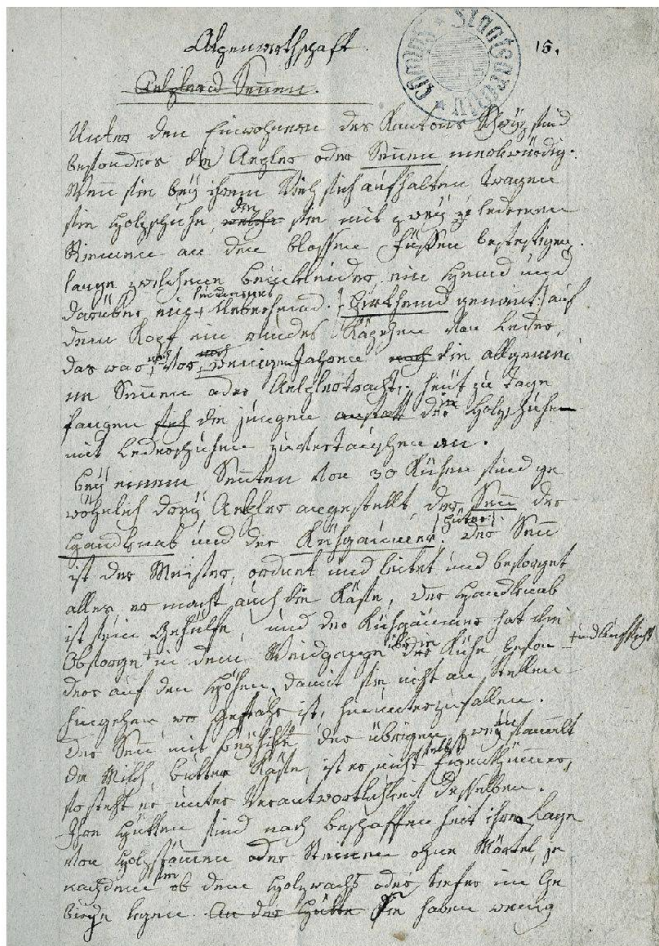 Alpenwirthschaft
15.
Staatsarchiv Schwyz
Aelpler und Sennen.
Unter den Einwohnern des Kantons Schwÿz sind
besonders die Aelpler oder Sennen merkwürdig.
Wen sie beÿ ihrem Vieh sich aufhalten tragen
sie Holzschuhe, welche den sie mit zweÿ ledernen
Riemen an den blossen Füssen befestigen.
lange Beinkleider ein Hemd und
darüber ein Ueberhemd. Hirthemd genant: auf
dem Kopf ein rundes Käpchen von Leder,
das war vor wenigen Jahren noch die allgemei
ne Sennen oder Aelplertracht; heut zu Tage
fangen die jungen anstatt die Holzschuhe
mit Lederschuhen zu vertauschen an.
beÿ einem Senten von 30 Kühen sind ge
wöhnlich dreÿ Aelpler angestellt der Senn der
Handknab und der Kühgaumer. Hüter: der Senn
ist der Meister, ordnet und leitet und besorget
alles er macht auch die Käse, der Handknab
ist sein Gehülfe, und der Kühgaumer hat die
Obsorge in dem Weidgange über die Kühe beson
ders auf den Höhen, damit sie nicht an Stellen
hingehen wo Gefahr ist, hinunterzufallen.
Der Senn mit beÿhilfe der übrigen zweÿ sammelt
die Milch butter Käse, ist er nicht selbst Eigenthümer,
so steht er unter Verantwortlichkeit desselben.
Ihre Hütten sind nach beschaffenheit ihrer Lage
von Holzstämen oder Steinen ohne Mörtel, je
nachdem sie ob dem Holzwachs oder tiefer im Ge
birge liegen. An der Hütte Sie haben wenig